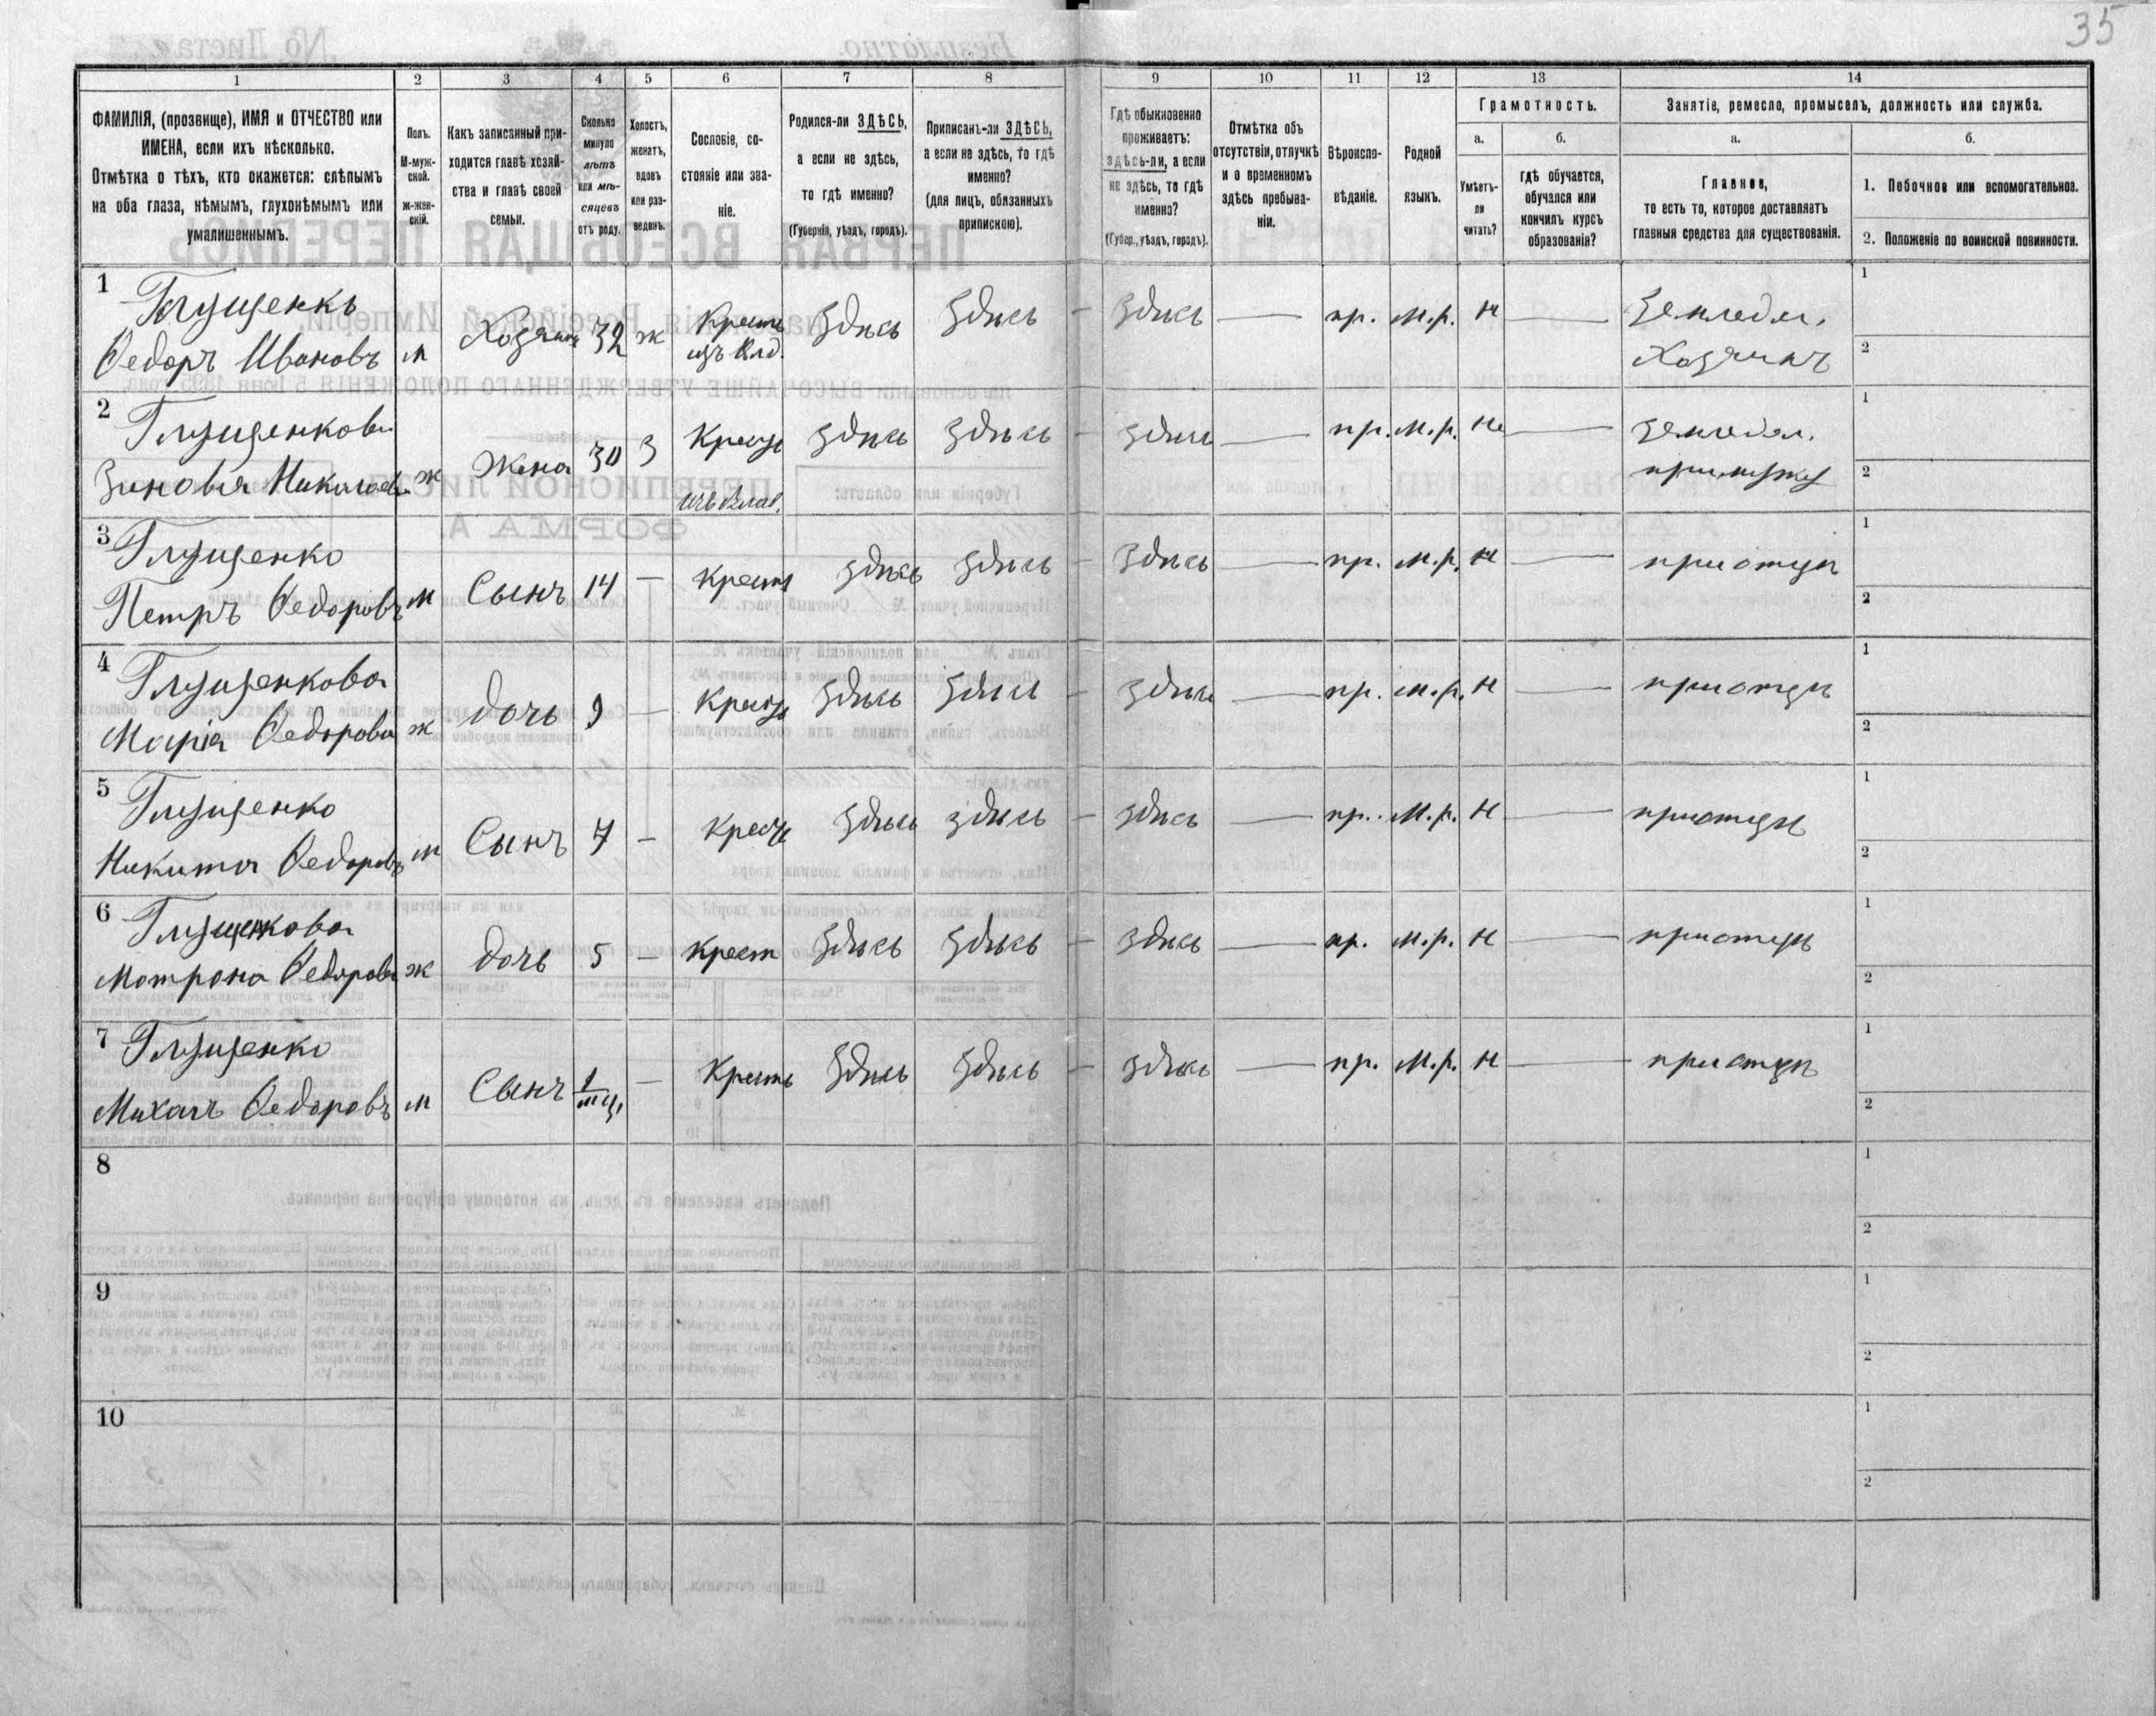 35
1 2 3 4 5 6 7 8 9 10 11 12 13 14
ФАМИЛІЯ, (прозвище), ИМЯ и ОТЧЕСТВО или
ИМЕНА, если ихъ нѣсколько.
Отмѣтка о тѣхъ, кто окажется: слѣпымъ
на оба глаза, нѣмымъ, глухонѣмымъ или
умалишеннымъ.
Полъ.
М-муж-
ской.
ж-жен-
скій.
Какъ записанный при-
ходится главѣ хозяй-
ства и главѣ своей
семьи.
Сколько
минуло
лѣтъ
или мѣ-
сяцевъ
отъ роду.
Холостъ,
женатъ,
вдовъ
или раз-
веденъ.
Сословіе, со-
стояніе или зва-
ніе.
Родился-ли ЗДѢСЬ,
а если не здѣсь,
то гдѣ именно?
(Губернія, уѣздъ, городъ).
Приписанъ-ли ЗДѢСЬ,
а если не здѣсь, то гдѣ
именно?
(для лицъ, обязанныхъ
припискою).
Гдѣ обыкновенно
проживаетъ:
здѣсь-ли, а если
не здѣсь, то гдѣ
именно?
(Губер., уѣздъ, городъ).
Отмѣтка объ
отсутствіи, отлучкѣ
и о временномъ
здѣсь пребыва-
ніи.
Вѣроиспо-
вѣданіе.
Родной
языкъ.
Грамотность.
а.
Умѣетъ-
ли
читать?
б.
гдѣ обучается,
обучался или
кончилъ курсъ
образованія?
Занятіе, ремесло, промыселъ, должность или служба.
а.
Главное,
то есть то, которое доставляетъ
главныя средства для существованія.
б.
1. Побочное или вспомогательное.
2. Положеніе по воинской повинности.
1 Глущенкъ Крест Здѣсь Здѣсь - Здѣсь — пр. М.р. н — Земледѣл. 1
Федоръ Ивановъ м Хозяинъ 32 ж изъ влд. Хозяинъ 2
2 Глущенкова Крест здѣсь здѣсь - здѣсь — пр. М.р. не — земледѣл. 1
Зиновья Николаева ж Жена 30 З изъ влад. при мужѣ 2
3 Глущенко здѣсь здѣсь - здѣсь — пр. М.р. н — при отцѣ 1
Петръ Федоровъ м Сынъ 14 — Крест 2
4 Глущенкова Крест здѣсь здѣсь - здѣсь — пр. М.р. н — при отцѣ 1
Марія Федорова ж дочь 9 — 2
5 Глущенко Крест здѣсь здѣсь - здѣсь — пр. М.р. н — при отцѣ 1
Никита Федоровъ м Сынъ 7 — 2
6 Глущенкова Крест здѣсь здѣсь - здѣсь — пр. М.р. н — при отцѣ 1
Мотрона Федорова ж дочь 5 — 2
7 Глущенко Крест здѣсь здѣсь - здѣсь — пр. М.р. н — при отцѣ 1
Михаилъ Федоровъ м Сынъ 1 мц. — 2
8 1
2
9 1
2
10 1
2